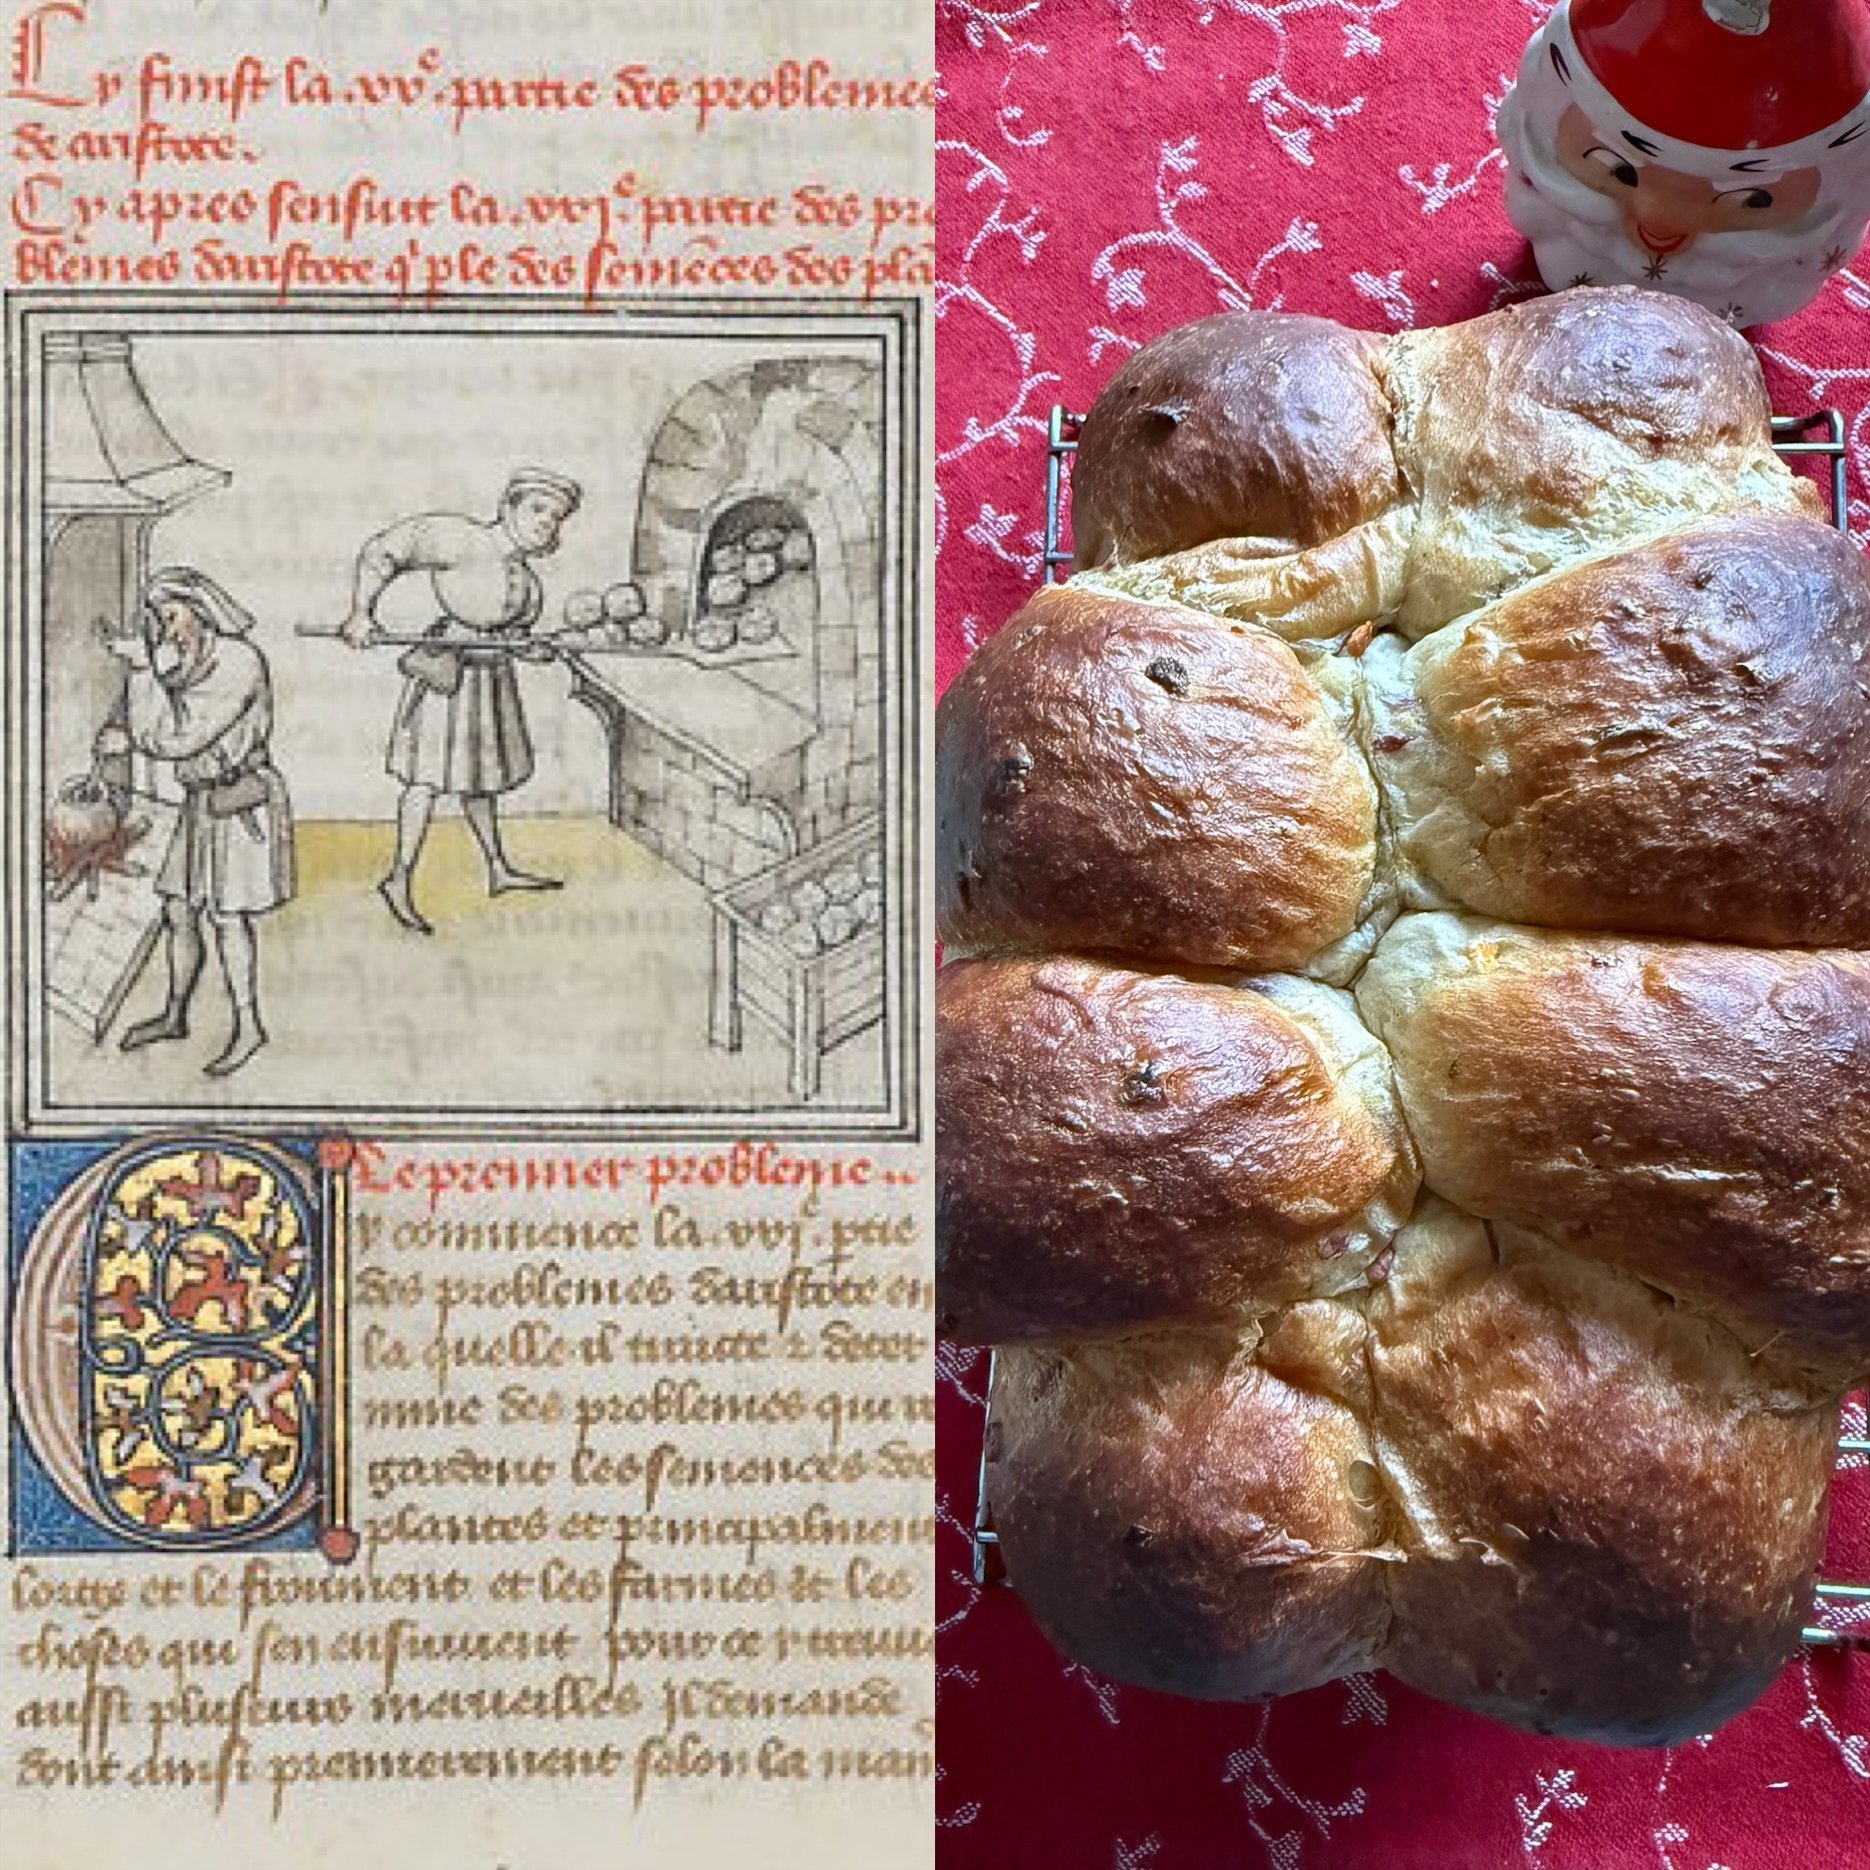 Cy finist la .xve. partie des problemes
de aristote.
Cy apres sensuit la .xvje. partie des pro
blemes daristote q' ple des semēces des plā
Le premier probleme..
Cy cōmence la .xvje. ptie
des problemes daristote en
la quelle il traicte & deter
mine des problemes qui
gardent les semences des
plantes et principalment
lorge et le froument et les farines & les
choses qui sen ensuiuent pour ce
aussi pluseurs merueilles Jl demande
dont ainsi premierement selon la man